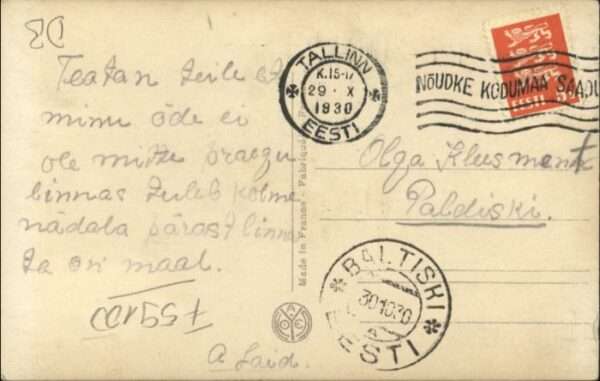 D3
Teatan teile et
minu õde ei
ole mitte praegu
linnas tuleb kolme
nädala pärast linna
ta on maal.
A Laid.
Made in France - Fabriqué
TALLINN
K.15-
29 · X
1930
EESTI
NÕUDKE KODUMAA SAADU
EESTI
Olga Klusment
Paldiski.
BALTISKI
30 10 30
A
EESTI